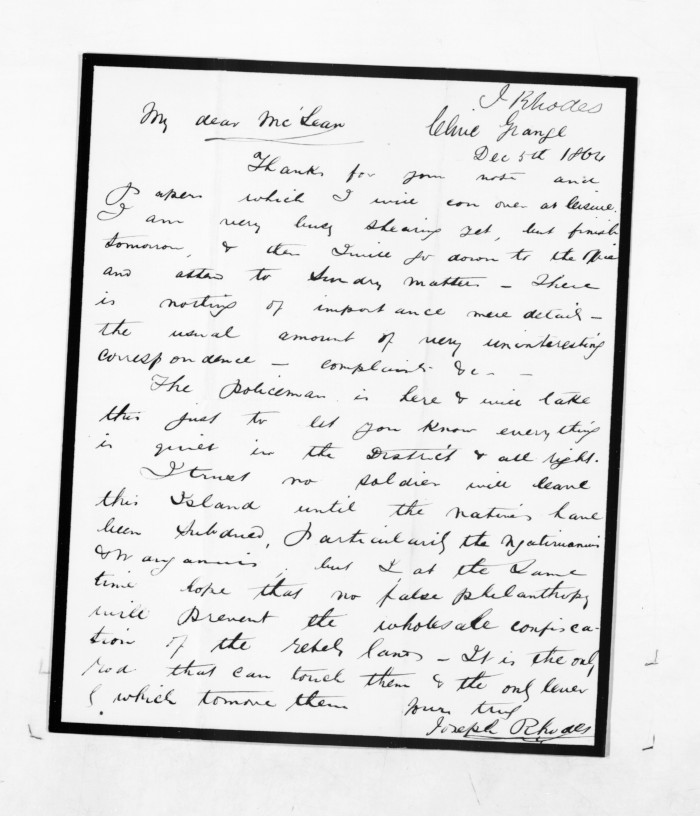 J Rhodes
My dear McLean
Clive Grange
Dec 5th 1864
Thanks for your note and
Papers which I will con over at leisure.
I am very busy shearing yet, but finish
tomorrow, & then I will go down to the Office
and attend to Sundry matters - There
is nothing of importance mere detail -
the usual amount of very uninteresting
correspondence - complaints &c - -
The Policeman is here & will take
this just to let you know everything
is quiet in the District & all right.
I trust no soldier will leave
this Island until the natives have
been Subdued, Particularly the Ngatiruanuis
& Wanganuis, but I at the Same
time hope that no false philanthropy
will prevent the wholesale confisca-
tion of the rebels lands - It is the only
rod that can touch them & the only lever
by which to move them
Yours truly
Joseph Rhodes